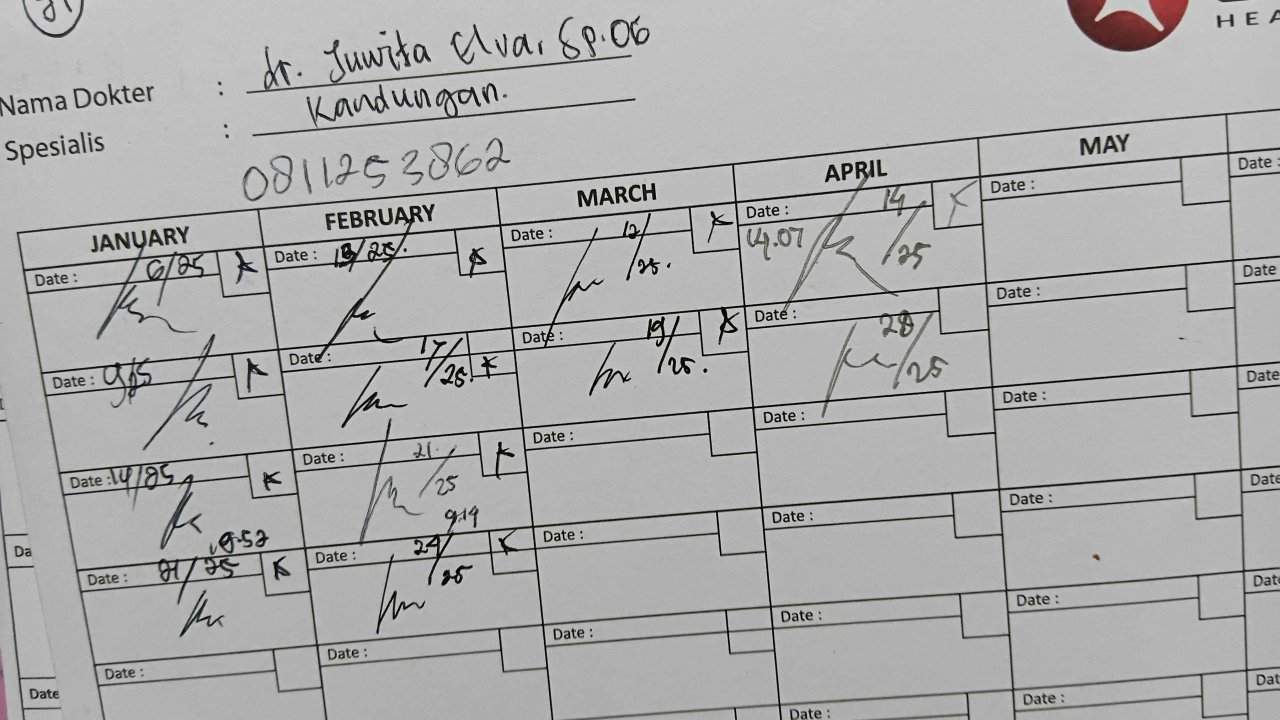 HEA
Nama Dokter : dr. Juwita Elva. Sp.OG
Spesialis : Kandungan.
0811253862
JANUARY FEBRUARY MARCH APRIL MAY
Date : 6/25 Date : 13/25. Date : 12/25. Date : 14/25 Date : Date :
14.07
Date : 9/25 Date : 17/25 Date : 19/25. Date : 28/25 Date : Date
Date : 14/25 Date : 21/25 Date : Date : Date : Date
Date : 21/25 Date : 24/25 Date : Date : Date : Date
9.19
Date : Date : Date : Date : Date : Dat
Da
Date
Date : Dat